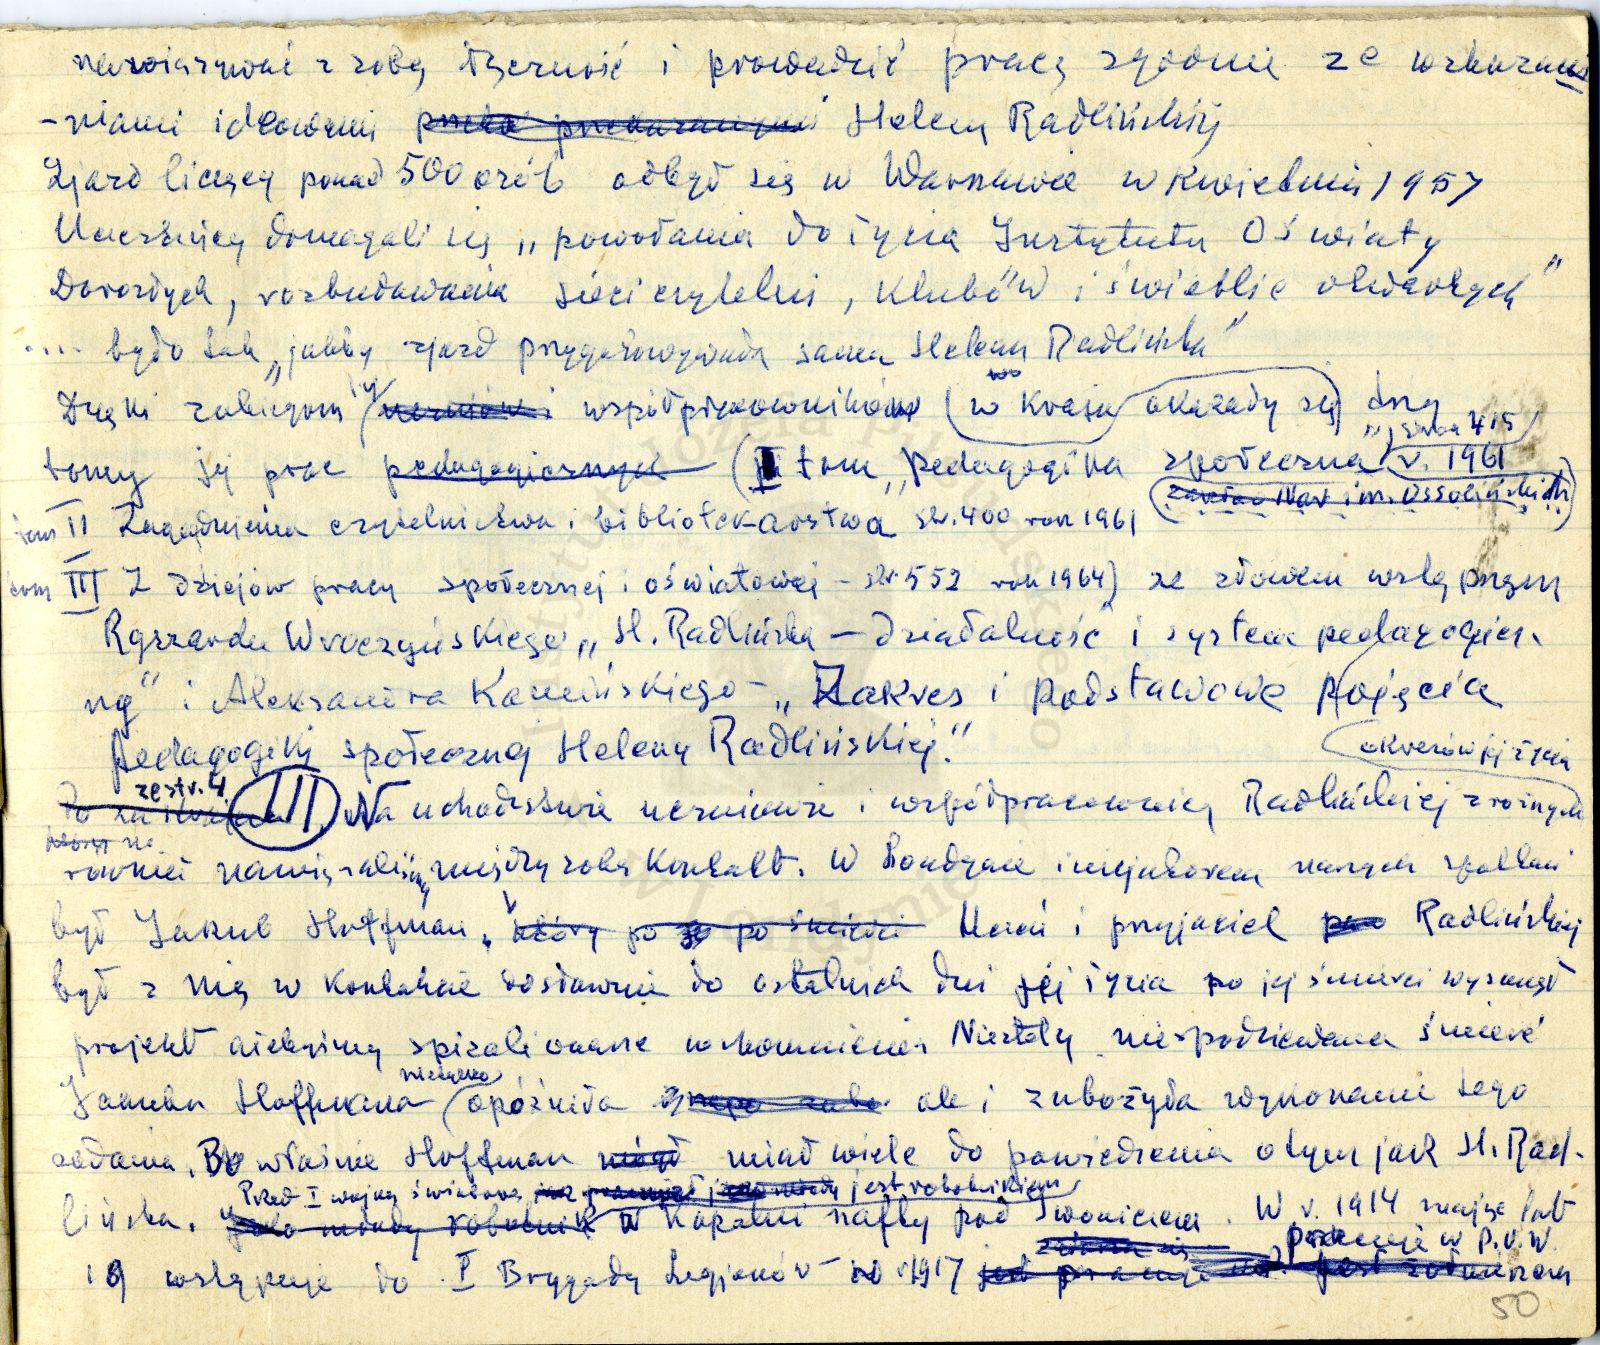 nawiązywać z sobą łączność i prowadzić pracę zgodnie ze wskaza
-niami ideowemi Heleny Radlińskiej
Zjazd liczący ponad 500 osób odbył się w Warszawie w kwietniu 1957
Uczestnicy domagali się „powołania do życia Instytutu Oświaty
Dorosłych, rozbudowania sieci czytelni, klubów i świetlic
.... było tak „jakby zjazd przygotowywała sama Helena Radlińska"
Dzięki zabiegom jej uczniów i współpracowników w kraju ukazały się
tomy jej prac pedagogicznych (I tom „Pedagogika społeczna stron 415 r. 1961
Zakład Nar im. Ossolińskich
tom II Zagadnienia czytelnictwa i bibliotekarstwa" str. 400 rok 1961
tom III Z dziejów pracy społecznej i oświatowej – str. 552 rok 1964) ze słowem wstępnym
Ryszarda Wroczyńskiego „H. Radlińska – działalność i system pedagogicz-
ny" i Aleksandra Kamińskiego – „Zakres i podstawowe pojęcia
pedagogiki społecznej Heleny Radlińskiej."
okresów jej życia
ze str. 4
III Na uchodźstwie uczniowie i współpracownicy Radlińskiej z różnych
również nawiązali między sobą kontakt. W Londynie inicjatorem naszych spotkań
był Jakub Hoffman, który po śmierci Uczeń i przyjaciel Radlińskiej
był z nią w kontakcie do ostatnich dni jej życia po jej śmierci wysunął
projekt abyśmy spisali wspomnienia Niestety niespodziewana śmierć
nie tylko
Jakuba Hoffmana opóźniła ale i zubożyła wykonanie tego
zadania. Bo właśnie Hoffman miał wiele do powiedzenia o tym jak H. Rad-
Przed I wojną światową jest robotnikiem
lińska. jako młody robotnik w kopalni nafty pod W r. 1914 mając lat
pracuje w P.O.W.
19 wstępuje do I Brygady Legionów r 1917
50